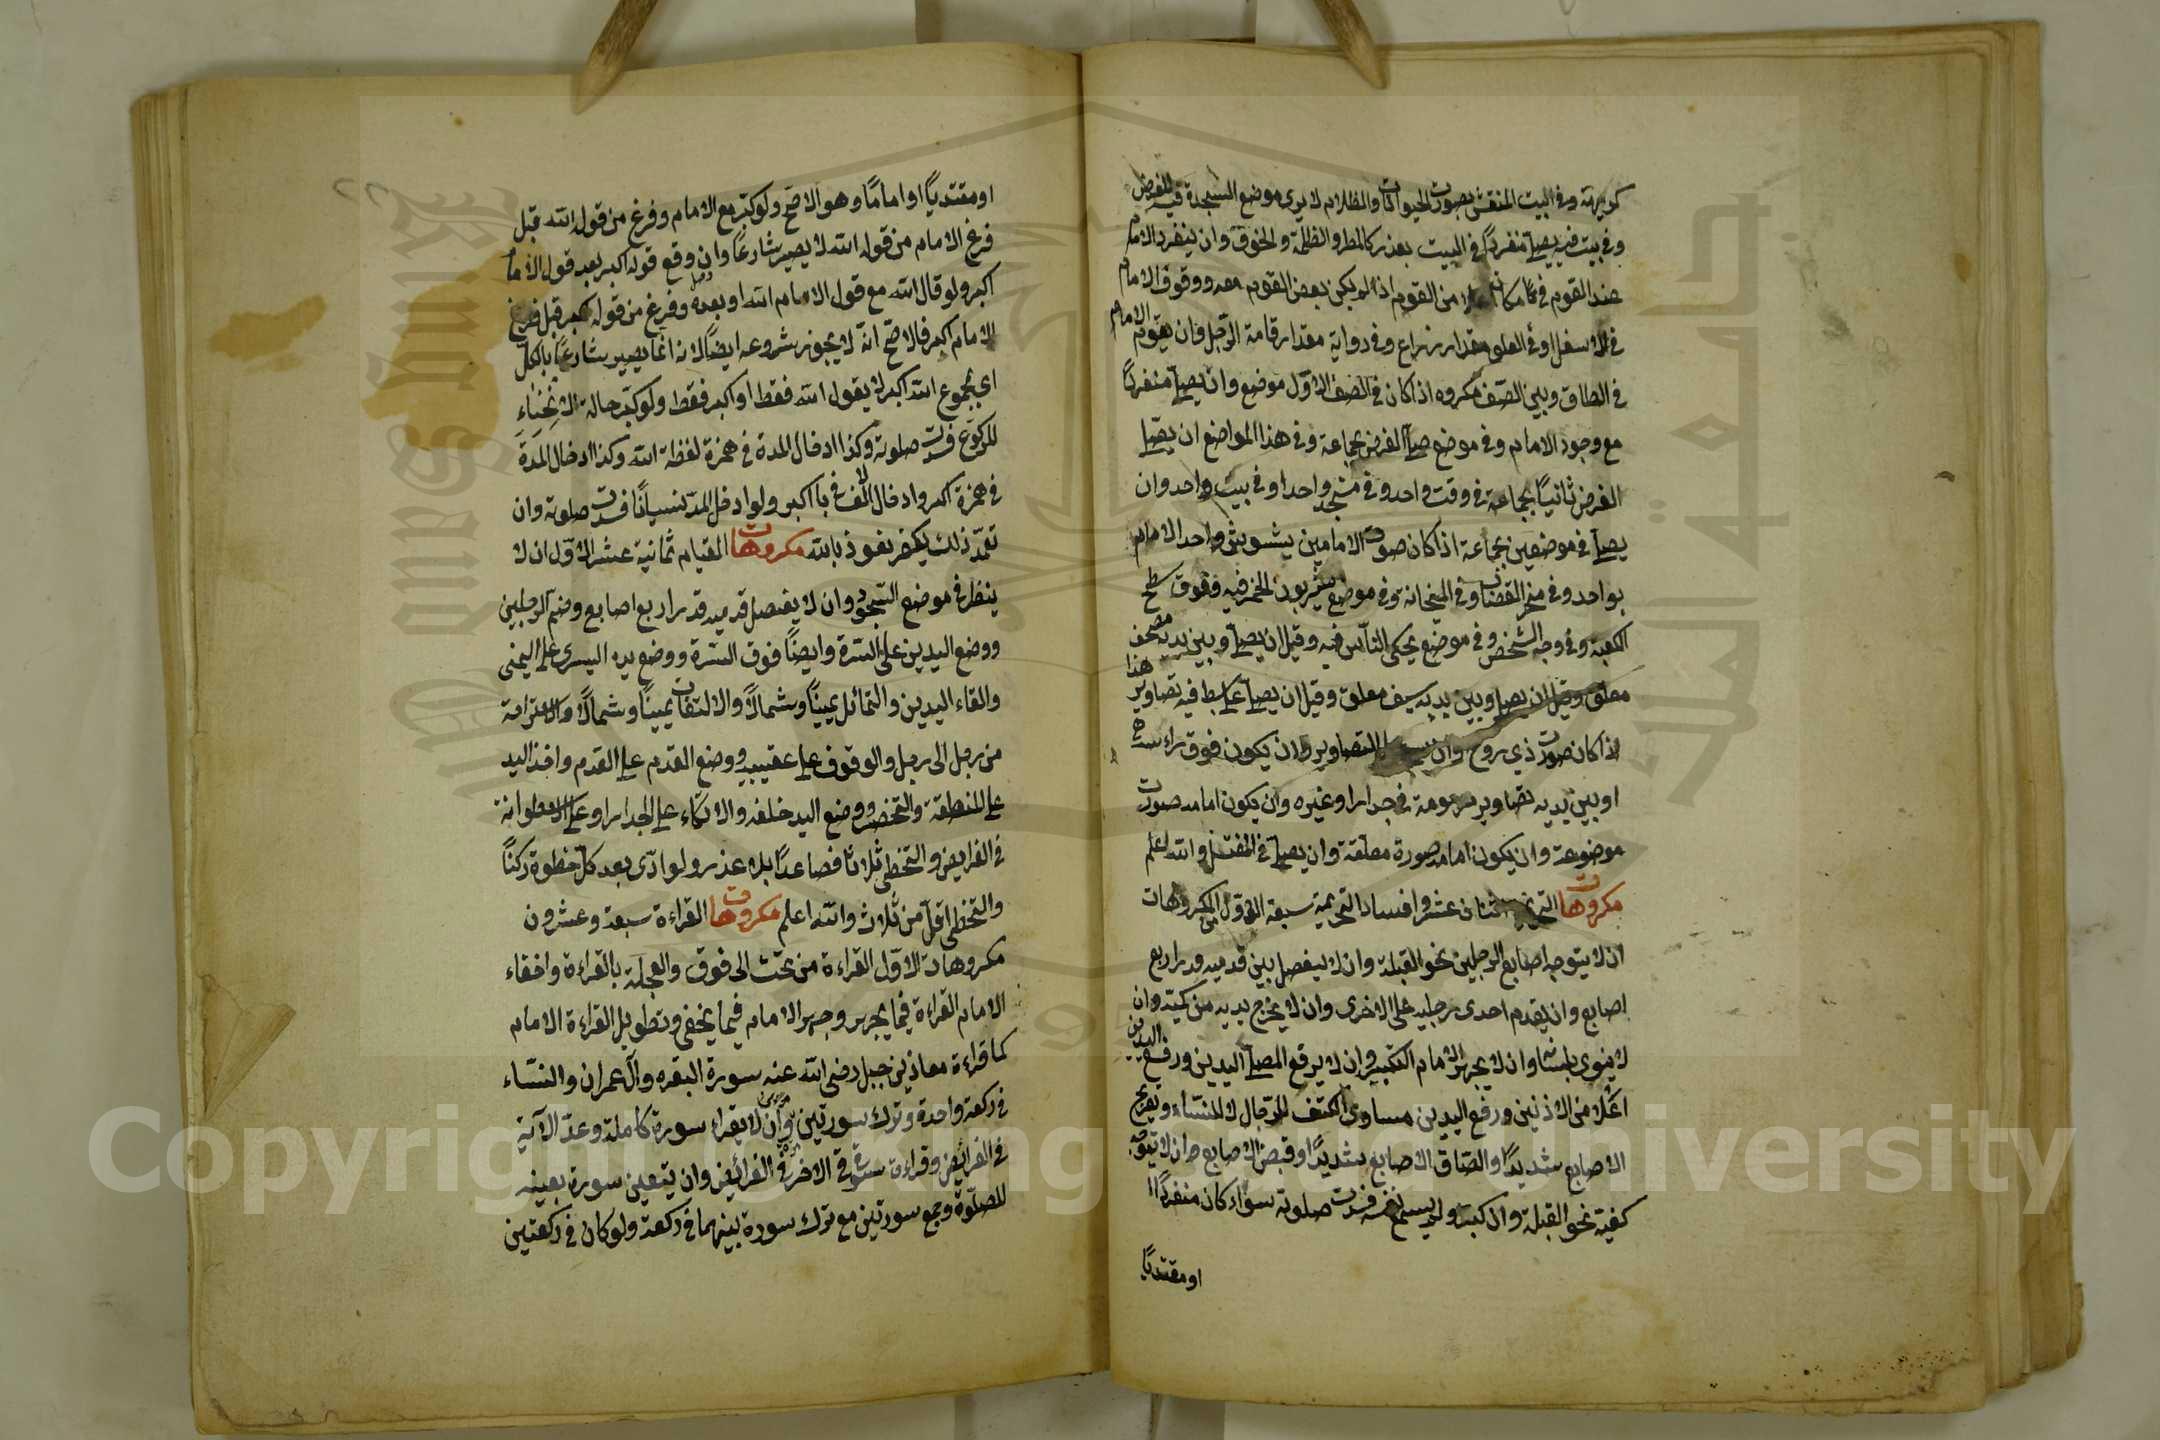 كريهة وفي البيت المنقش بصورت الحيوانات والظلام لا يرى موضع السجدة فيه للفرض
وفي بيت فيه يصلي منفردًا في البيت بعذر كالمطر والظلمة والخوف وان ينفرد الامام
عند القوم في مكان من القوم اذا لم يكن بعض القوم معه ووقوف الامام
في الاسفل او في العلو مقدار ذراع وفي رواية مقدار قامة الرجل وان يقوم الامام
في الطاق وبين الصف مكروه اذا كان في الصف الاول موضع وان يصلي منفردًا
مع وجود الامام وفي موضع صلى الفرض بجماعة وفي هذا المواضع ان يصلي
الفرض ثانيًا بجماعة في وقت واحد وفي مسجد واحد او في بيت واحد وان
يصلي في موضعين بجماعة اذا كان صوت الامامين يشوش واحد الامام
بواحد وفي منحر القصاب وفي الميخانة وفي موضع يشربون الخمر فيه وفوق سطح
الكعبة وفي وجه الشخص وفي موضع يحكي الناس فيه وقيل ان يصلي وبين يديه مصحف
معلق وقيل ان يصلي وبين يديه سيف معلق وقيل ان يصلي على بسط فيه تصاوير هذا
اذا كان صورت ذي روح وان يسجد على التصاوير وان يكون فوق راسه
او بين يديه تصاوير مرسومة في جدار او غيره وان يكون امامه صورت
موضوعة وان يكون امامه صورة معلقة وان يصلي في المغتسل والله اعلم
مكروهات التحريمة اثنان عشر وافساد التحريمة سبعة الاول المكروهات
ان لا يتوجه اصابع الرجلين نحو القبلة وان لا يفصل بين قدميه قدر اربع
اصابع وان يقدم احدى رجليه على الاخرى وان لا يخرج يديه من كميه وان
لا ينوى بلسنه وان لا يجهر الامام التكبير وان لا يرفع المصلي اليدين ورفع اليدين
اعلا من الاذنين ورفع اليدين مساوى الكتف للرجال لا للنساء وتفريج
الاصابع شديدًا والصاق الاصابع شديدًا وقبض الاصابع وان لا يتوجه
كفيه نحو القبلة وان كبر ولم يسمع نفسه فسدت صلوته سواء كان منفردًا
او مقتديًا
او مقتديًا او امامًا وهو الاصح ولو كبر مع الامام وفرغ من قوله الله قبل
فرغ الامام من قوله الله لا يصير شارعًا وان وقع قوله اكبر بعد قول الامام
اكبر ولو قال الله مع قول الامام الله او بعده وفرغ من قوله اكبر قبل فرغ
الامام اكبر فالاصح انه لا يجوز شروعه ايضًا لانه انما يصير شارعًا بالكل
اي بمجموع الله اكبر لا بقول الله فقط او اكبر فقط ولو كبر حالة الانحناء
للركوع فسدت صلوته وكذا ادخال المدة في همزة لفظة الله وكذا ادخال المدة
في همزة اكبر وادخال الالف في با اكبر ولو ادخل المد نسيانًا فسدت صلوته وان
تعمد ذلك يكفر نعوذ بالله مكروهات القيام ثمانية عشر الاول ان لا
ينظر في موضع السجود وان لا يفصل قدميه قدر اربع اصابع وضم الرجلين
ووضع اليدين على السرة وايضًا فوق السرة ووضع يده اليسرى على اليمنى
والقاء اليدين والتمائل يمينًا وشمالًا والالتفات يمينًا وشمالًا والاستراحة
من رجل الى رجل والوقوف على عقبيه ووضع القدم على القدم واخذ اليد
على المنطقة والتخصر ووضع اليد خلفه والاتكاء على الجدار او على الاسطوانة
في الفرايض والتخطى ثلاثا فصاعدًا بلا عذر ولو ادى بعد كل خطوة ركنًا
والتخطى اقل من ثلاث والله اعلم مكروهات القراءة سبعة وعشرون
مكروهات الاول القراءة من تحت الى فوق والعجلة بالقراءة واخفاء
الامام القراءة فيما يجهر وجهر الامام فيما يخفى وتطويل القراءة الامام
كما قراءة معاذ بن جبل رضى الله عنه سورة البقره وآل عمران والنساء
في ركعة واحدة وترك سورتين وان لا يقراء سورة كاملة وعد الآية
في الفرائض وقراءة سورة في الاخر في الفرائض وان يتعين سورة بعينه
للصلوة وجمع سورتين مع ترك سورة بينهما في ركعة ولو كان في ركعتين
Copyright © King Saud University